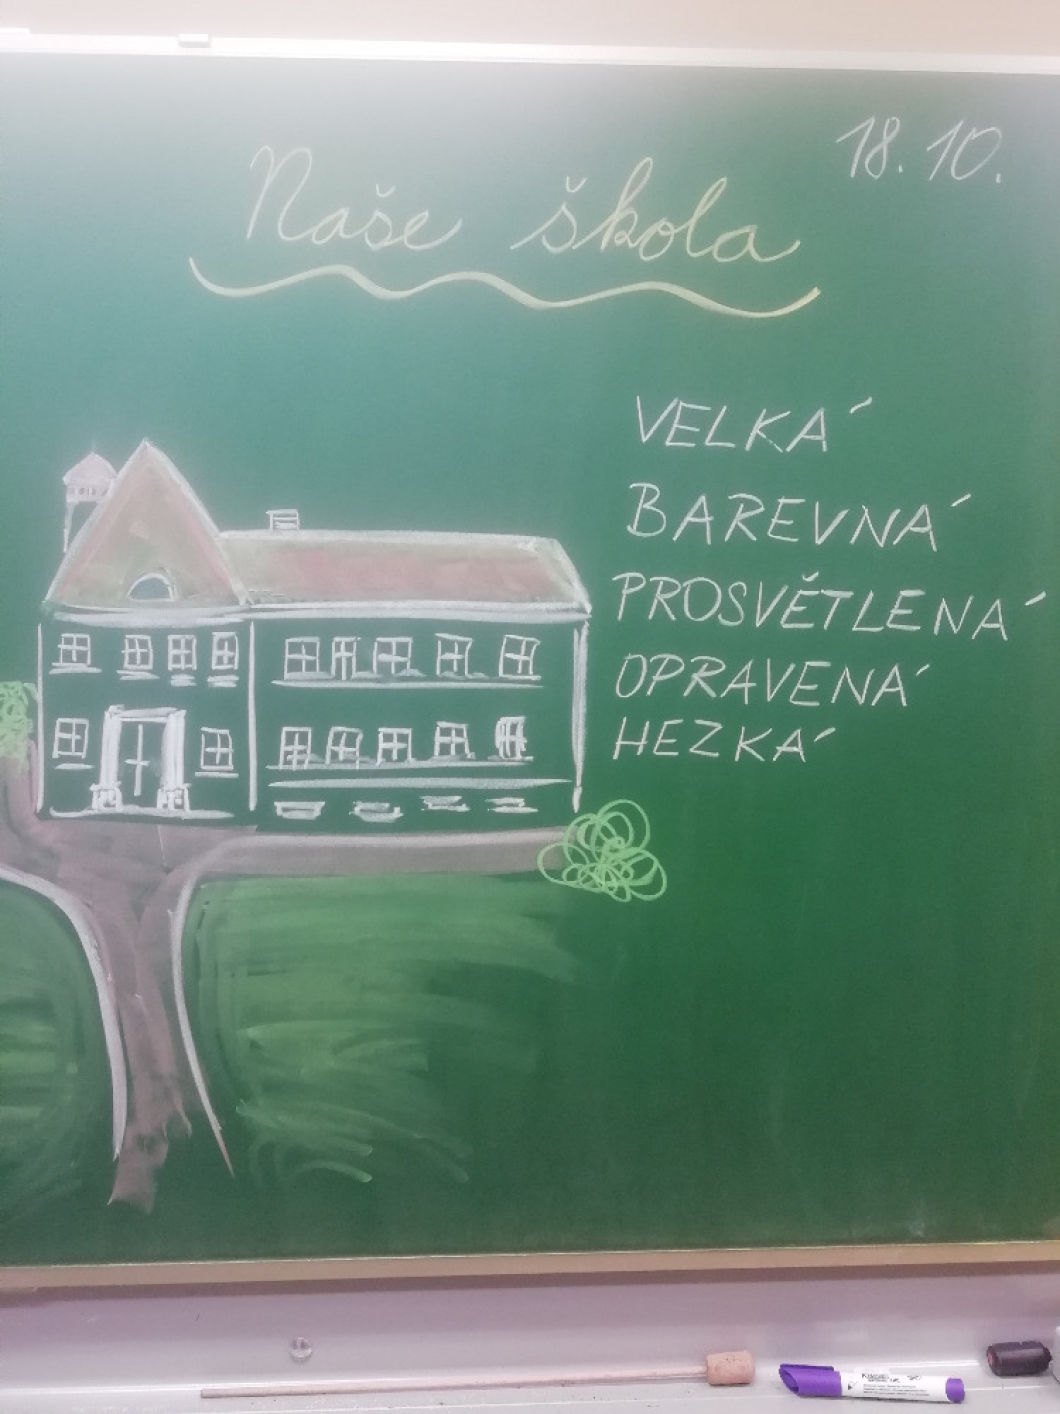 18. 10.
Naše škola
VELKÁ
BAREVNÁ
PROSVĚTLENÁ
OPRAVENÁ
HEZKÁ